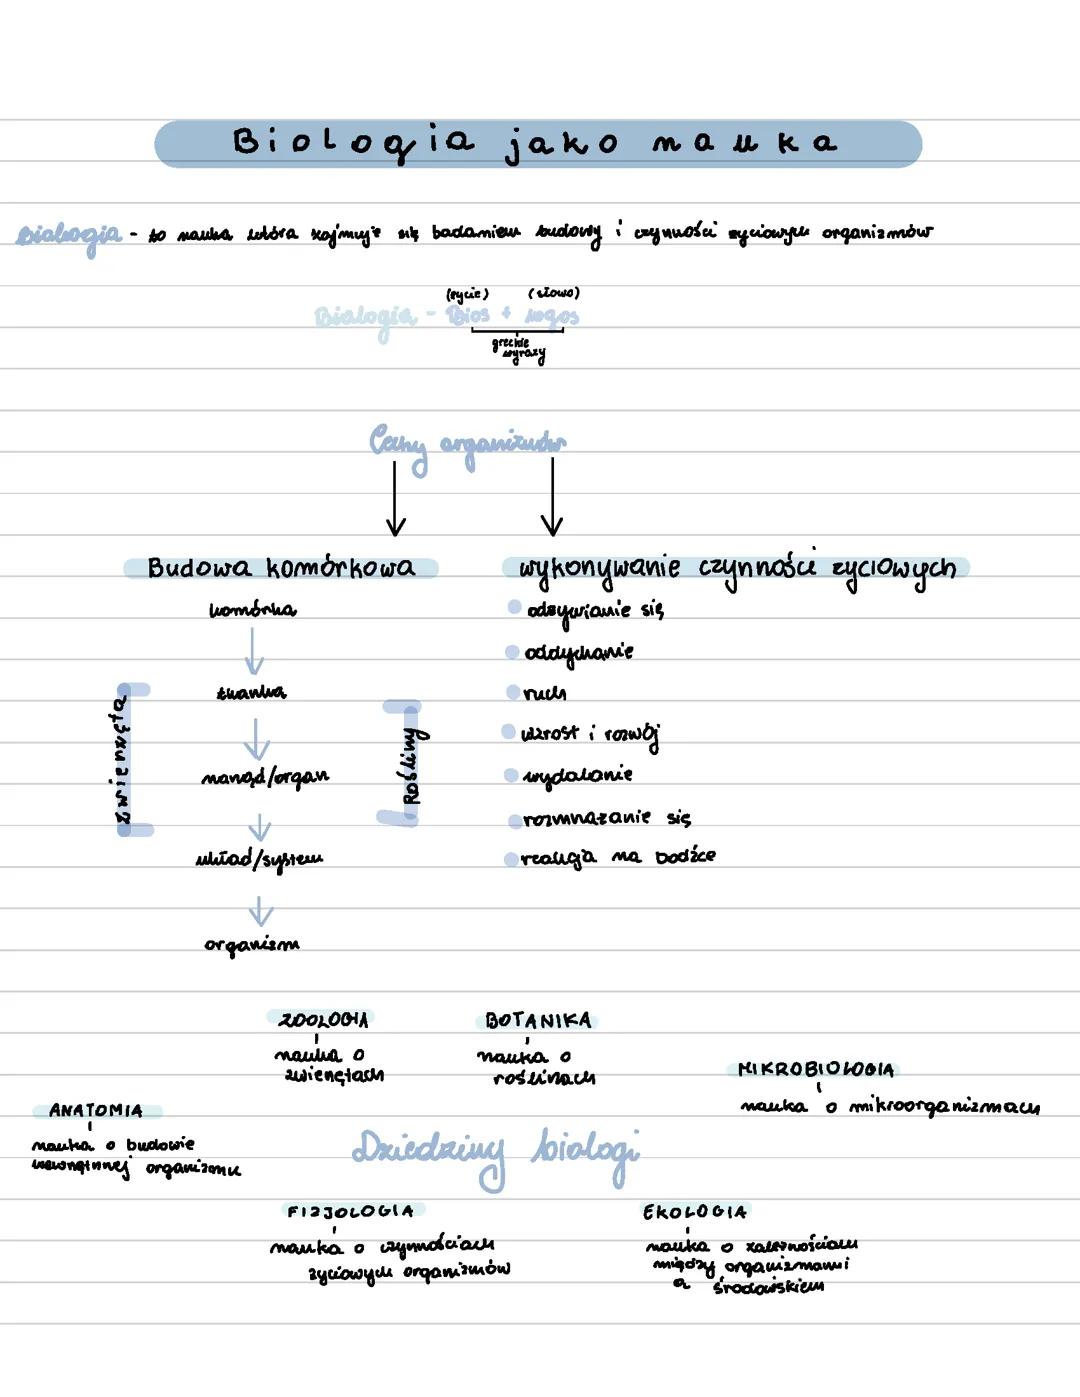 Biologia jako nauka
Biologia - to nauka która zajmuje się badaniem budowy i czynności życiowych organizmów
(życie) (słowo)
Biologia - Bios + logos
greckie
wyrazy
Cechy organizmów
Budowa komórkowa
wykonywanie czynności życiowych
komórka
odżywianie się
oddychanie
tkanka
ruch
zwierzęta
Rośliny
wzrost i rozwój
narząd/organ
wydalanie
rozmnażanie się
układ/system
reakcja na bodźce
organizm
ZOOLOGIA
nauka o
zwierzętach
BOTANIKA
nauka o
roślinach
MIKROBIOLOGIA
nauka o mikroorganizmach
ANATOMIA
nauka o budowie
wewnętrznej organizmu
Dziedziny biologi
FIZJOLOGIA
nauka o czynnościach
życiowych organizmów
EKOLOGIA
nauka o zależnościach
między organizmami
a środowiskiem